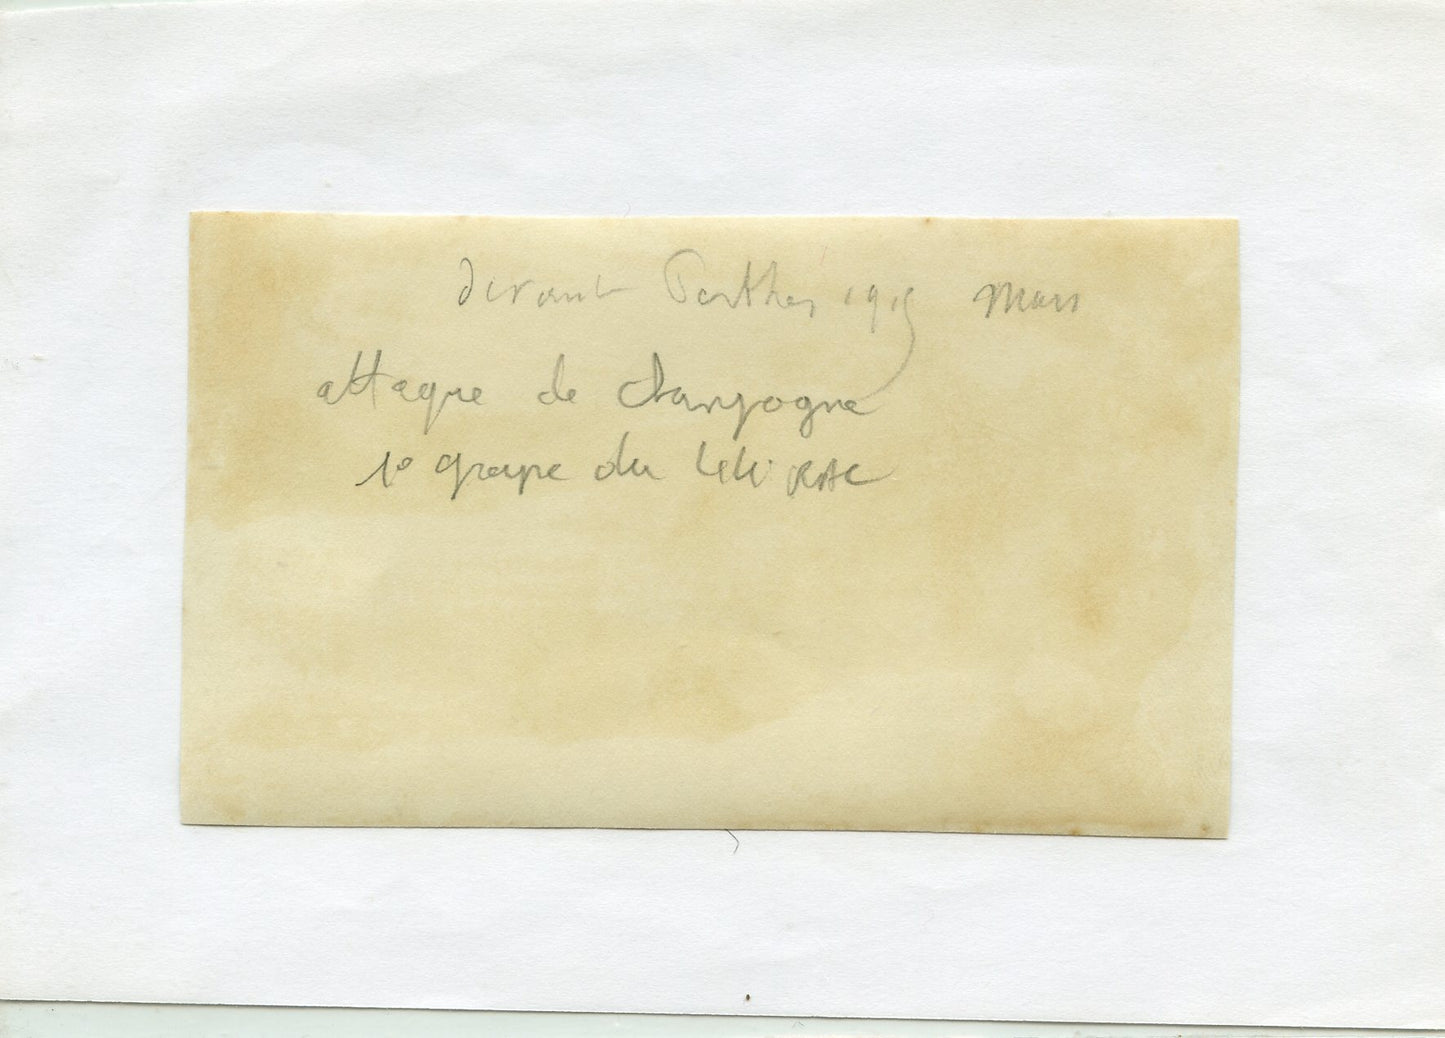 devant Perthes 1915 Mars
attaque de Champagne
1º groupe du 44 RAC